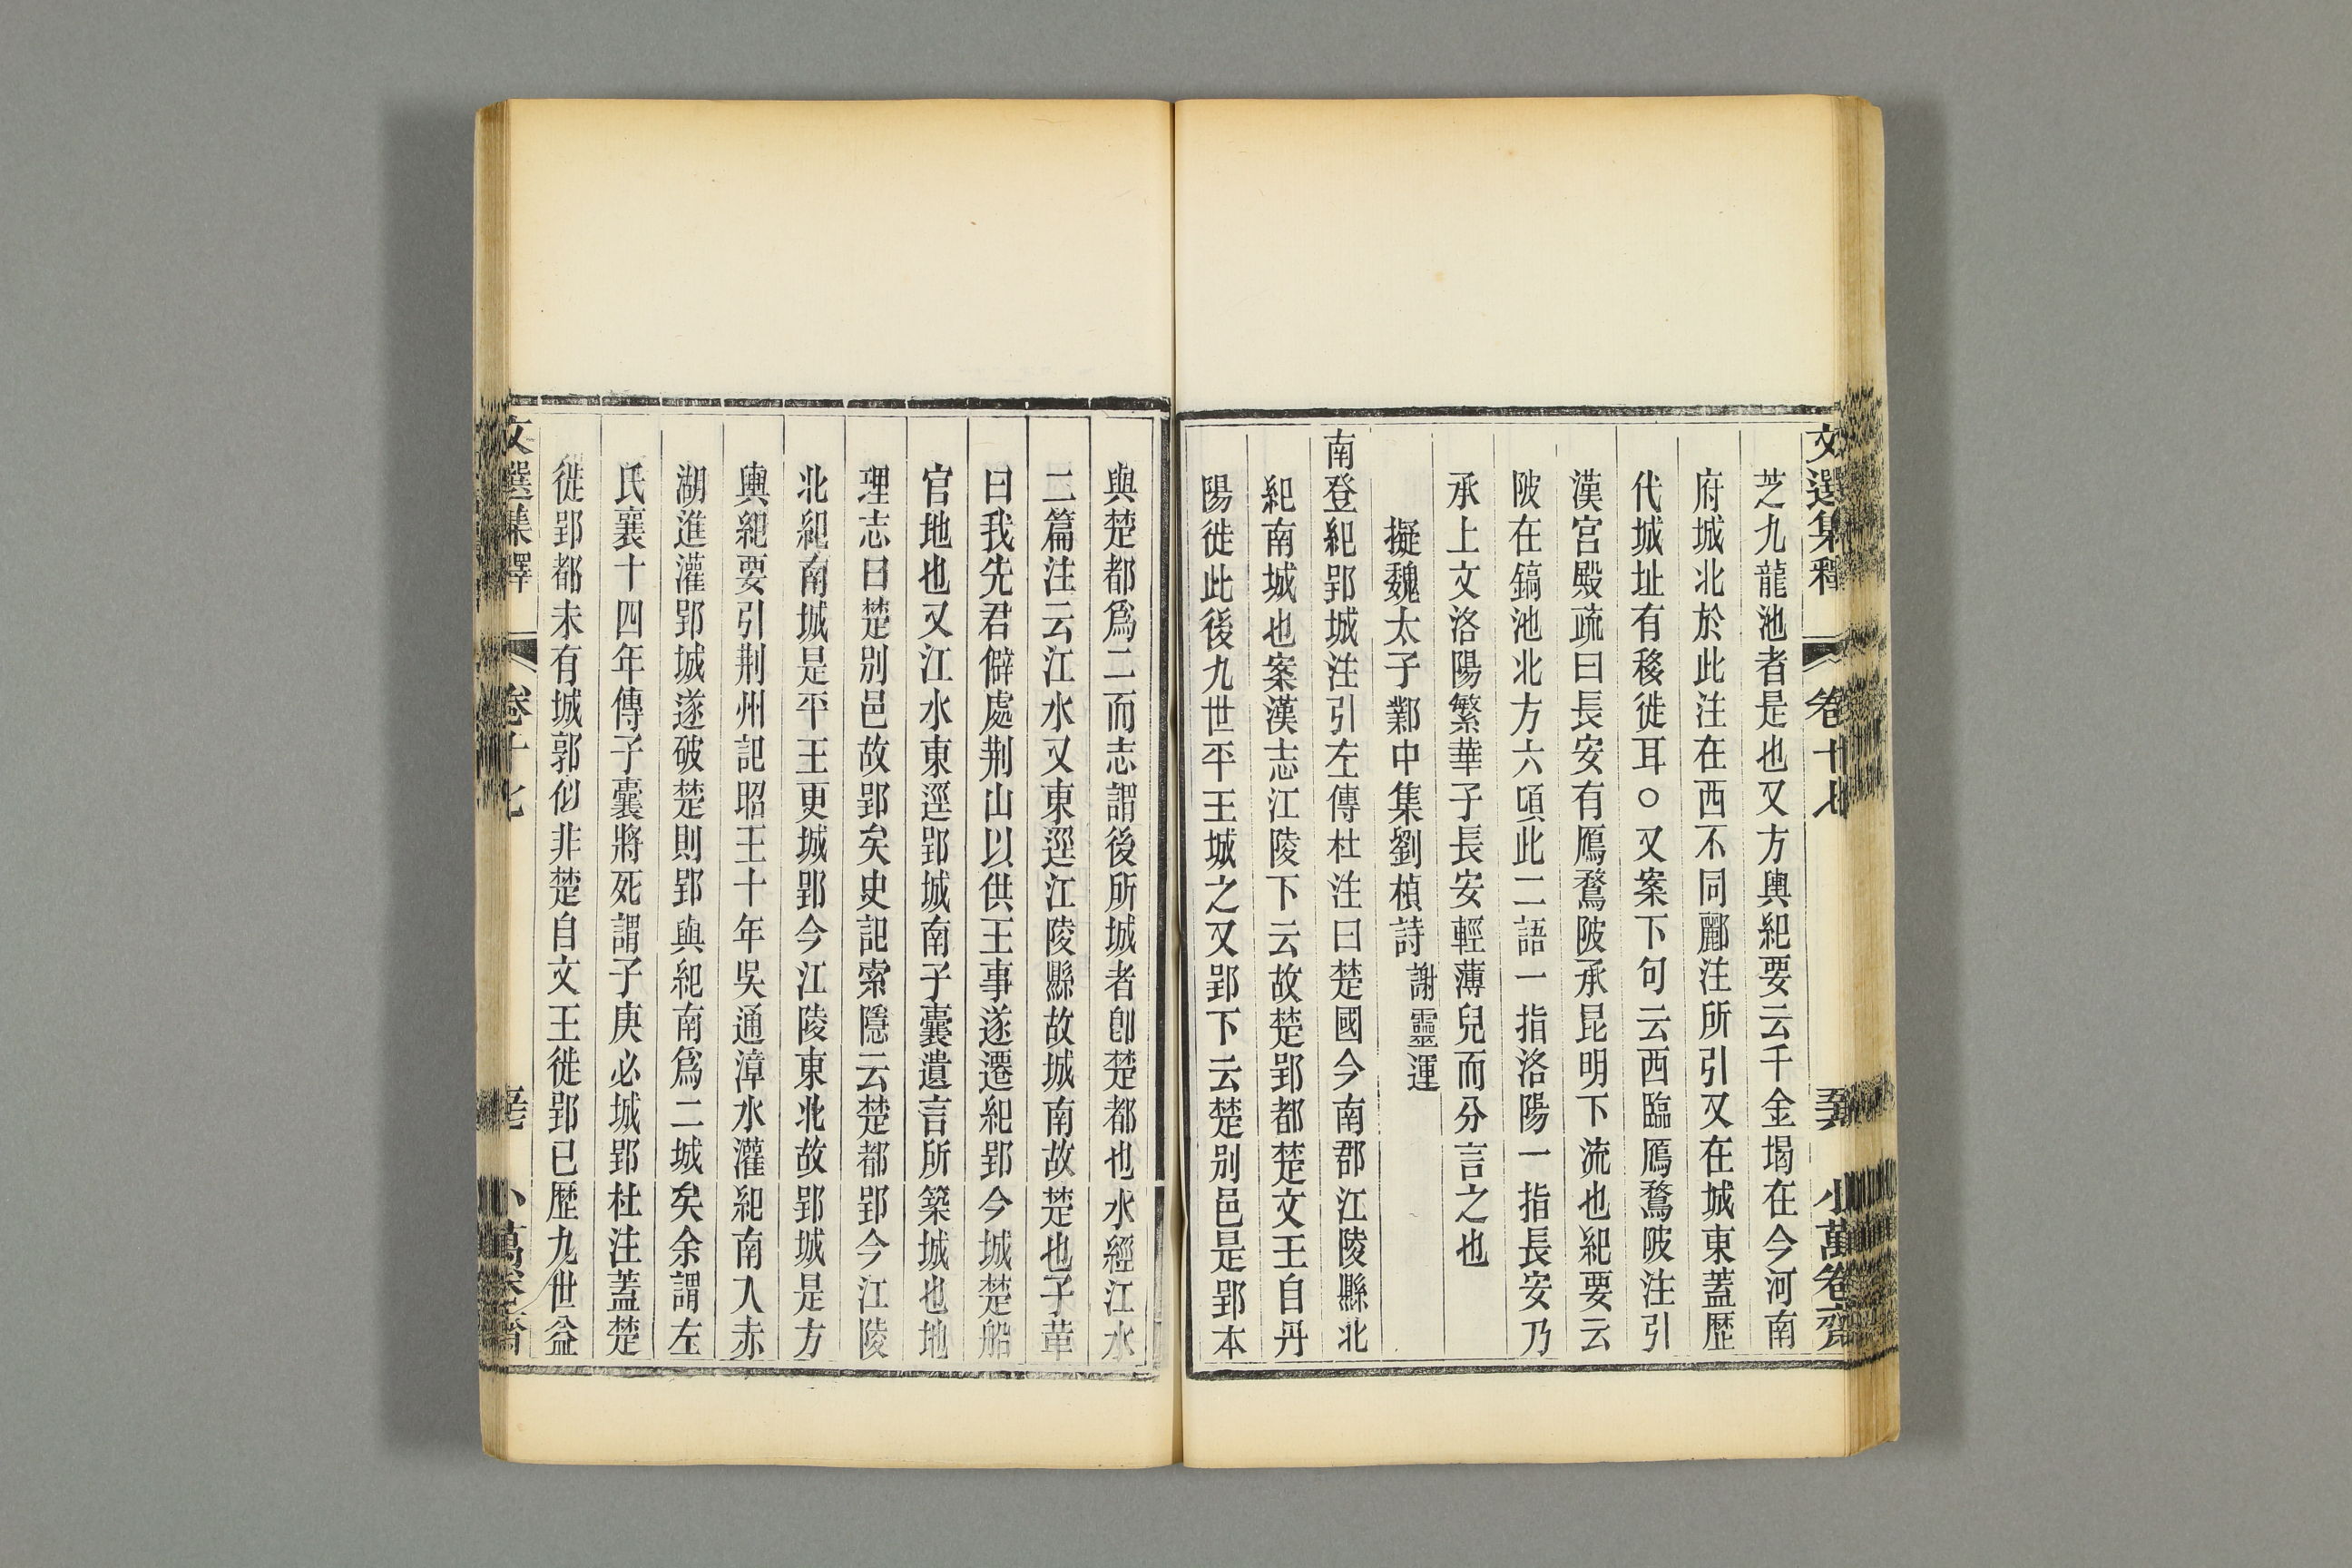 文選集釋 卷十七 小萬卷齋
芝九龍池者是也又方輿紀要云千金堨在今河南
府城北於此注在西不同酈注所引又在城東蓋歷
代城址有移徙耳○又案下句云西臨鴈鶩陂注引
漢宮殿疏曰長安有鴈鶩陂承昆明下流也紀要云
陂在鎬池北方六頃此二語一指洛陽一指長安乃
承上文洛陽繁華子長安輕薄兒而分言之也
擬魏太子鄴中集劉楨詩 謝靈運
南登紀郢城注引左傳杜注曰楚國今南郡江陵縣北
紀南城也案漢志江陵下云故楚郢都楚文王自丹
陽徙此後九世平王城之又郢下云楚別邑是郢本
與楚都爲二而志謂後所城者卽楚都也水經江水
二篇注云江水又東逕江陵縣故城南故楚也子革
曰我先君僻處荆山以供王事遂遷紀郢今城楚船
官地也又江水東逕郢城南子囊遺言所築城也地
理志曰楚別邑故郢矣史記索隱云楚都郢今江陵
北紀南城是平王更城郢今江陵東北故郢城是方
輿紀要引荆州記昭王十年吳通漳水灌紀南入赤
湖進灌郢城遂破楚則郢與紀南爲二城矣余謂左
氏襄十四年傳子囊將死謂子庚必城郢杜注蓋楚
徙郢都未有城郭似非楚自文王徙郢已歷九世益
文選集釋 卷十七 小萬卷齋